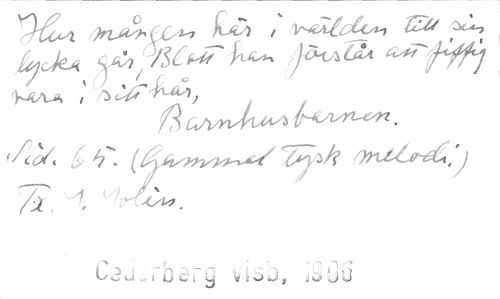 Hur mången här i världen till sin
lycka går, Blott han förstår att fiffig
vara i sitt hår,
Barnhusbarnen.
Sid. 65. (Gammal tysk melodi.)
Tr. I.
Cederberg visb, 1906